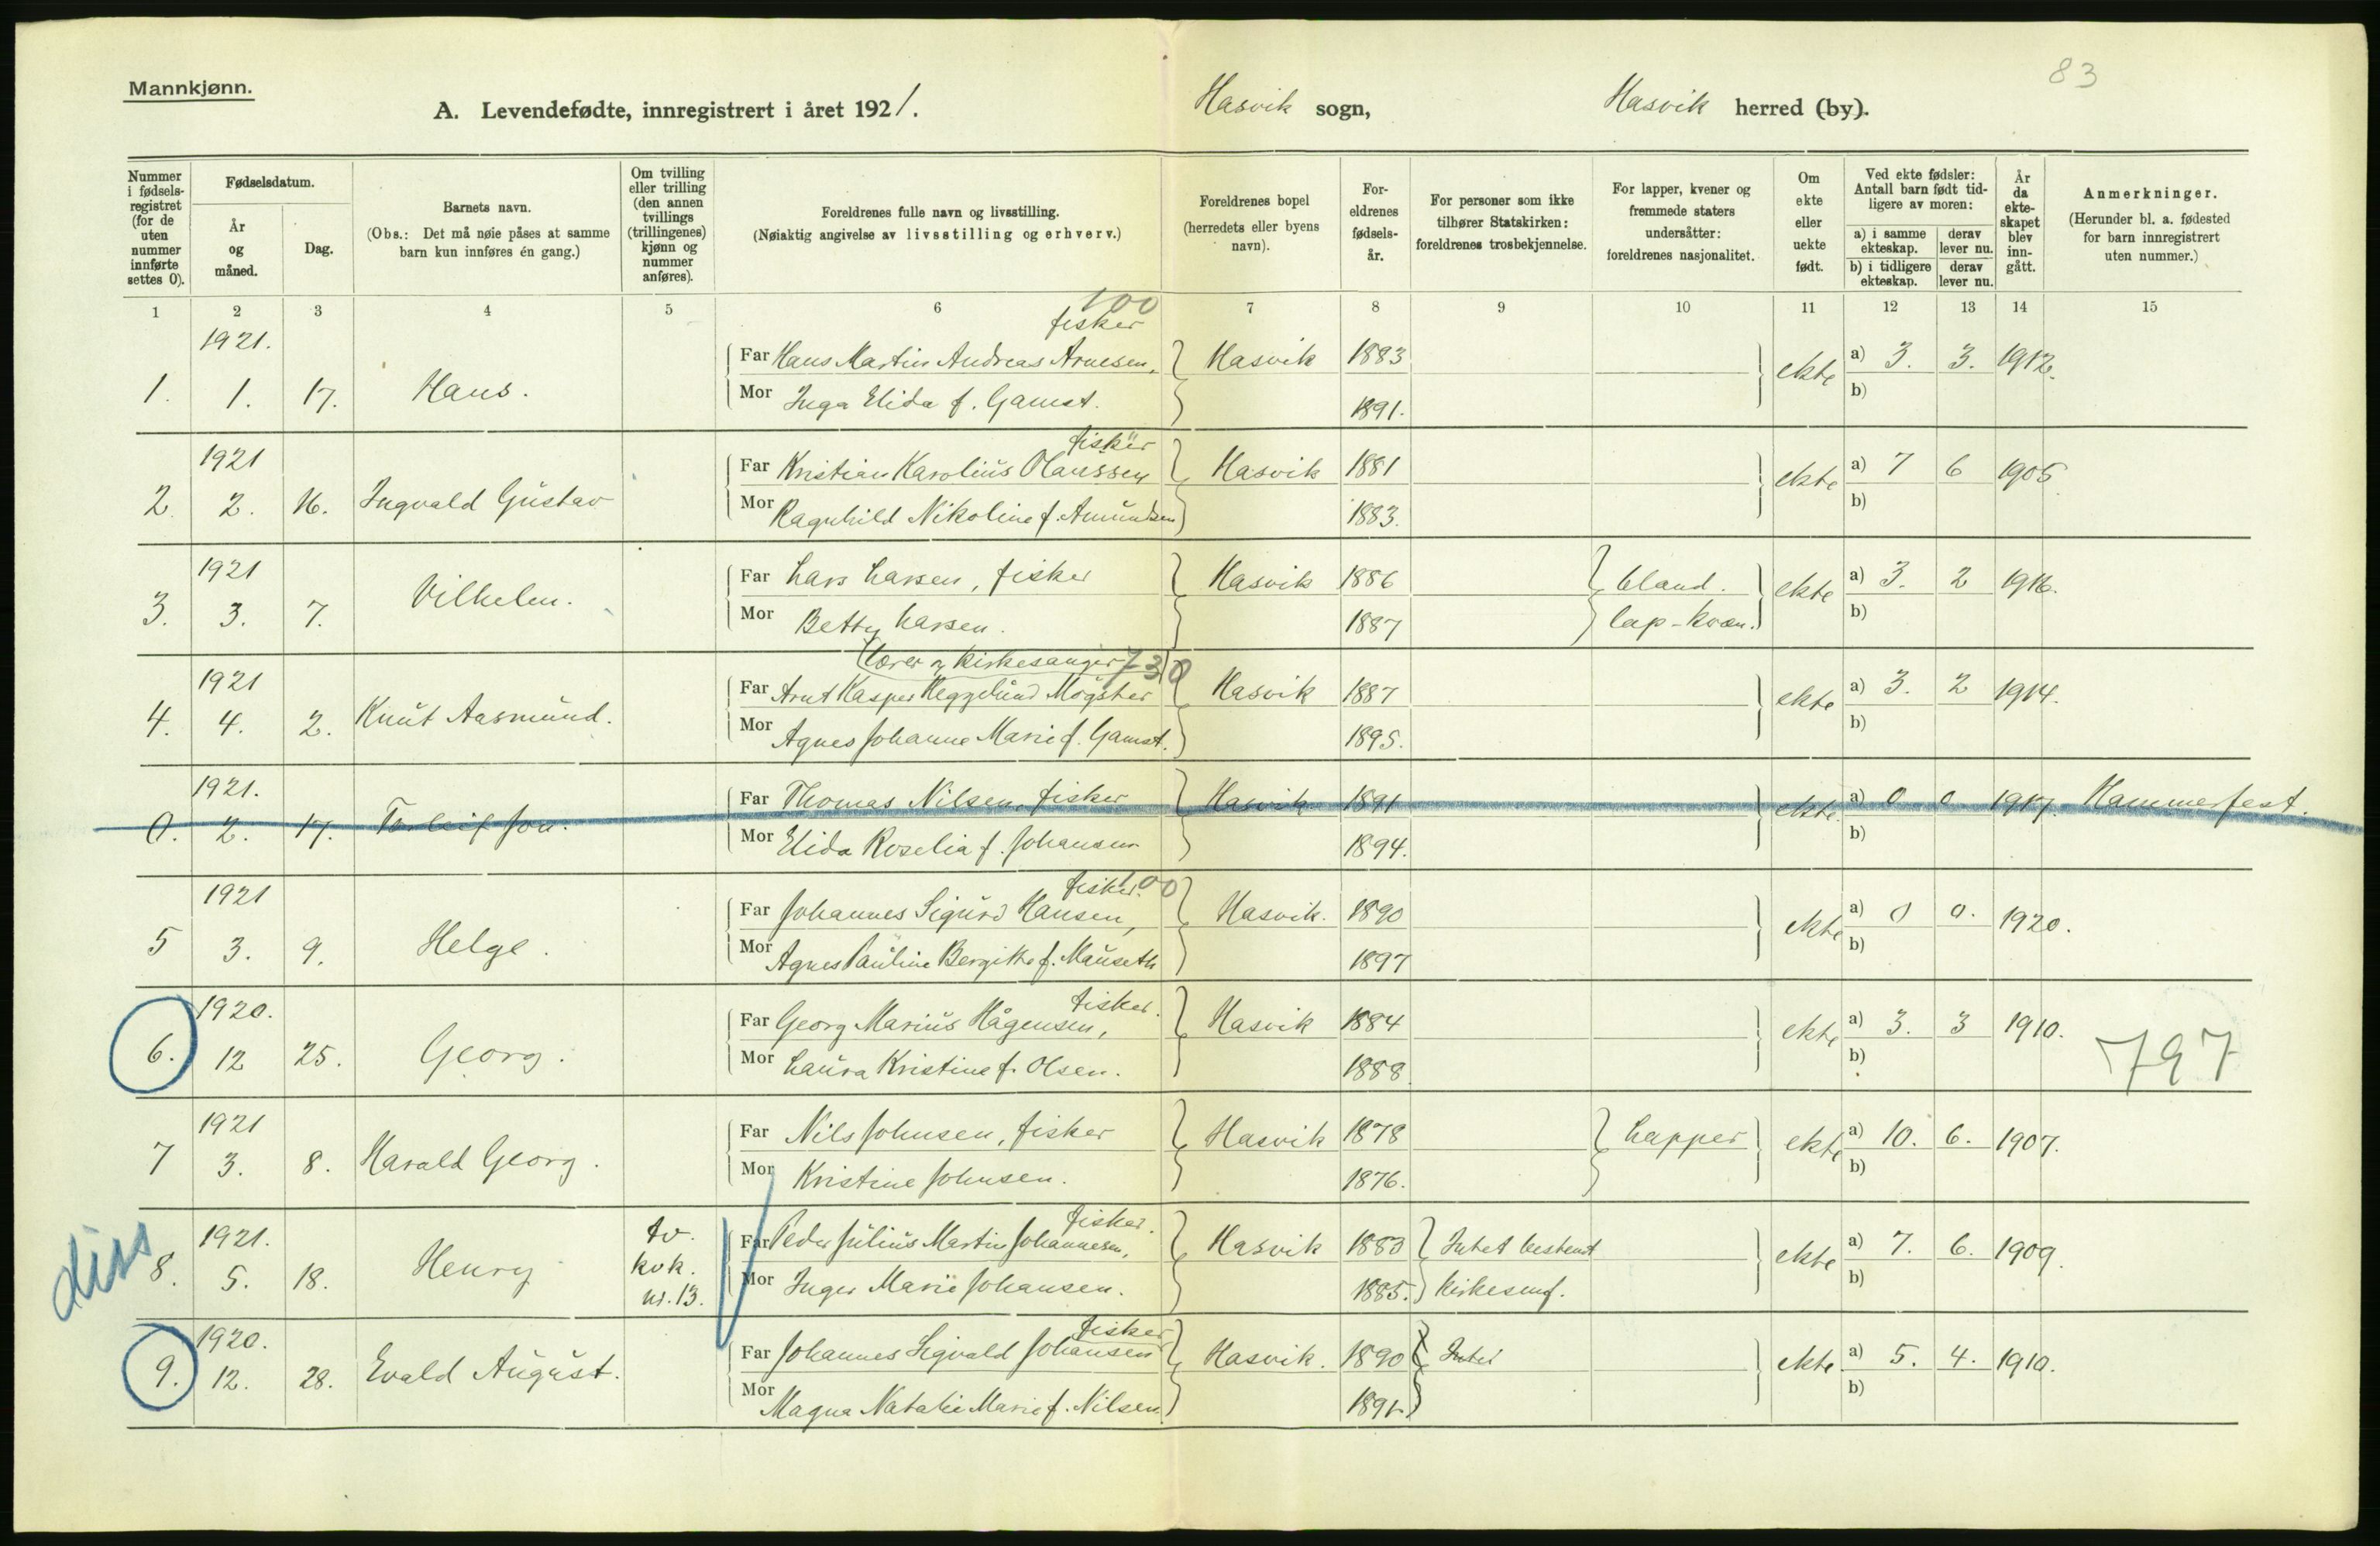 83
Mannkjønn.
A. Levendefødte, innregistrert i året 1921. Hasvik sogn, Hasvik herred (by).
Nummer i fødselsregistret (for de uten nummer innførte settes 0).
Fødselsdatum.
År og måned.
Dag.
Barnets navn.
(Obs.: Det må nøie påses at samme barn kun innføres én gang.)
Om tvilling eller trilling (den annen tvillings (trillingenes) kjønn og nummer anføres).
Foreldrenes fulle navn og livsstilling.
(Nøiaktig angivelse av livsstilling og erhverv.)
Foreldrenes bopel (herredets eller byens navn).
Foreldrenes fødselsår.
For personer som ikke tilhører Statskirken: foreldrenes trosbekjennelse.
For lapper, kvener og fremmede staters undersåtter: foreldrenes nasjonalitet.
Om ekte eller uekte født.
Ved ekte fødsler: Antall barn født tidligere av moren:
a) i samme ekteskap. derav lever nu.
b) i tidligere ekteskap. derav lever nu.
År da ekteskapet blev inngått.
Anmerkninger.
(Herunder bl. a. fødested for barn innregistrert uten nummer.)
1 2 3 4 5 6 7 8 9 10 11 12 13 14 15
100
1921. fisker
Far Hans Martin Andreas Arnesen, Hasvik 1883 ekte a) 3. 3. 1912.
1. 1. 17. Hans. Mor Inga Elida f. Gamst. 1891. b)
1921 fisker
Far Kristian Karolius Olaussen Hasvik 1881 ekte a) 7 6 1905
2. 2. 16. Ingvald Gustav Mor Ragnhild Nikoline f. Amundsen 1883. b)
1921 Far Lars Larsen, fisker Hasvik 1886 bland. ekte a) 3. 2 1916.
3. 3. 7. Vilhelm. Mor Betty Larsen. 1887 lap-kvæn. b)
(lærer og kirkesanger) 730
1921 Far Arnt Kasper Heggelund Møgster Hasvik 1887 ekte a) 3. 2 1914.
4. 4. 2. Knut Aasmund. Mor Agnes Johanne Marie f. Gamst. 1895. b)
1921. Far Thomas Nilsen, fisker Hasvik 1891 ekte. a) 0 0 1917. Hammerfest.
0. 2. 17. Torleif Jon. Mor Elida Roselia f. Johansen 1894. b)
fisker. 100
1921 Far Johannes Sigurd Hansen, Hasvik. 1890 ekte a) 0 0. 1920.
5 3. 9. Helge. Mor Agnes Pauline Bergithe f. Mauseth 1897 b)
1920. fisker.
Far Georg Marius Hågensen, Hasvik 1884 ekte a) 3. 3 1910. 797
6. 12 25. Georg. Mor Laura Kristine f. Olsen. 1888 b)
1921 Far Nils Johnsen, fisker Hasvik 1878 Lapper ekte a) 10. 6. 1907.
7 3. 8. Harald Georg. Mor Kristine Johnsen. 1876. b)
diss
1921. tv. fisker.
Far Peder Julius Martin Johannesen, Hasvik 1883 Intet bestemt ekte a) 7. 6. 1909.
8. 5. 18. Henry kvk. nr. 13. Mor Inger Marie Johansen. 1885. kirkesmf. b)
1920. fisker
Far Johannes Sigvald Johansen Hasvik. 1890 Intet ekte a) 5. 4. 1910.
9. 12. 28. Evald August. Mor Magna Natalie Marie f. Nilsen. 1891 b)